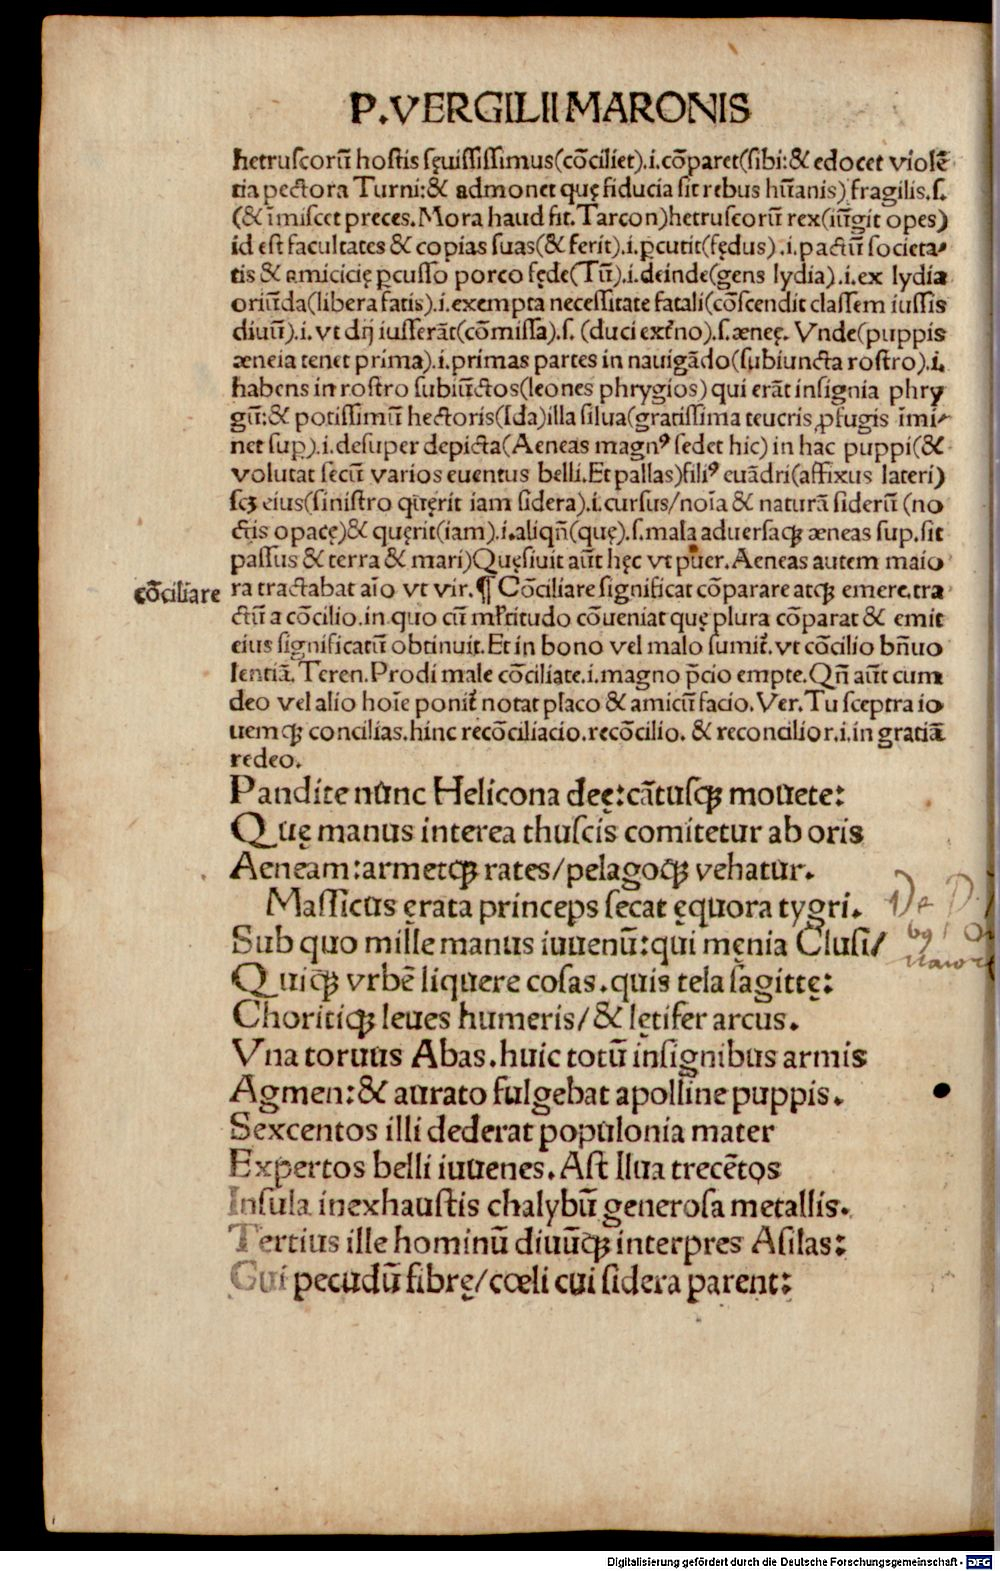 P.VERGILII MARONIS
hetruscorū hostis sęuississimus(cōciliet).i.cōparet(sibi:& edocet violē
tia pectora Turni:& admonet quę fiducia sit rebus hūanis) fragilis.s.
(& īmiscet preces.Mora haud fit. Tarcon)hetruscorū rex(iūgit opes)
id est facultates & copias suas(& ferit).i.ꝑcutit(fędus).i.pactū societa-
tis & amicicię ꝑcusso porco fęde(Tū).i.deinde(gens lydia).i.ex lydia
oriūda(libera fatis).i.exempta necessitate fatali(cōscendit classem iussis
diuū).i.vt dij iusserāt(cōmissa).s.(duci ext̄no).s.æneę. Vnde(puppis
æneia tenet prima).i.primas partes in nauigādo(subiuncta rostro).i.
habens in rostro subiūctos(leones phrygios) qui erāt insignia phry
gū:& potissimū hectoris(Ida)illa silua(gratissima teucris ꝓfugis īmi-
net suꝑ).i.desuper depicta(Aeneas magnꝰ sedet hic) in hac puppi(&
volutat secū varios euentus belli.Et pallas)filiꝰ euādri(affixus lateri)
scꝫ eius(sinistro qūęrit iam sidera).i.cursus/noīa & naturā siderū (no
ctis opacę)& quęrit(iam).i.aliqn̄(quę).s.mala aduersaqꝫ æneas sup.sit
passus & terra & mari)Quęsiuit aūt hęc vt puer.Aeneas autem maio
cōciliare
ra tractabat aīo vt vir.¶ Cōciliare significat cōparare atqꝫ emere.tra
ctū a cōcilio.in quo cū mltitudo cōueniat quę plura cōparat & emit
eius significatū obtinuit.Et in bono vel malo sumit̄.vt cōcilio bn̄uo
lentiā. Teren.Prodi male cōciliate.i.magno p̄cio empte.Qn̄ aūt cum
deo vel alio hoīe ponit̄ notat placo & amicū facio.Ver.Tu sceptra io
uemqꝫ concilias.hinc recōciliacio.recōcilio. & reconcilior.i.in gratiā
redeo.
Pandite nunc Helicona deę:cātusqꝫ mouete:
Quę manus interea thuscis comitetur ab oris
Aeneam:armetqꝫ rates/pelagoqꝫ vehatur.
Massicus ęrata princeps secat ęquora tygri.
Sub quo mille manus iuuenū:qui męnia Clusi/
Quiqꝫ vrbē liquere cosas.quis tela sagittę:
Choritiqꝫ leues humeris/& lętifer arcus.
Vna toruus Abas.huic totū insignibus armis
Agmen:& aurato fulgebat apolline puppis.
Sexcentos illi dederat populonia mater
Expertos belli iuuenes.Ast Ilua trecētos
Insula inexhaustis chalybū generosa metallis.
Tertius ille hominū diuūqꝫ interpres Asilas:
Cui pecudū fibrę/cœli cui sidera parent:
Digitalisierung gefördert durch die Deutsche Forschungsgemeinschaft - DFG